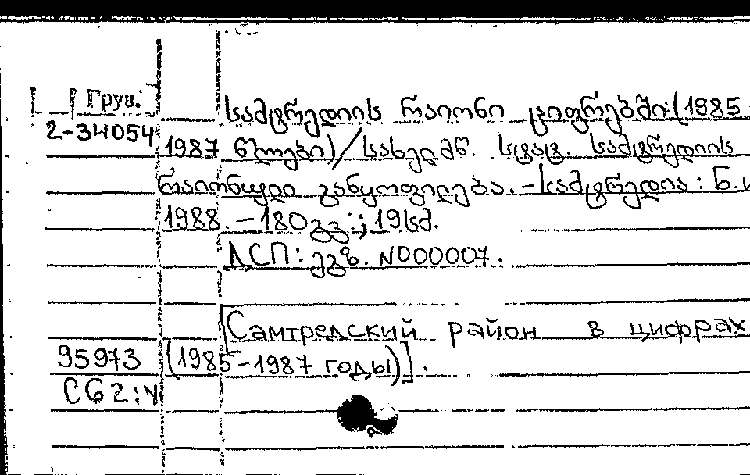 Груз.
2-34054
სამტრედიის რაიონი ციფრებში: (1985-
1987 წლები) / სახელმწ. სტატ. სამტრედიის
რაიონული განყოფილება. – სამტრედია: Б.и.
1988. – 180 გვ.; 19 სმ.
ДСП: ეგზ. N000007.
[Самтредский район в цифрах
95973 (1985-1987 годы)].
С62:4